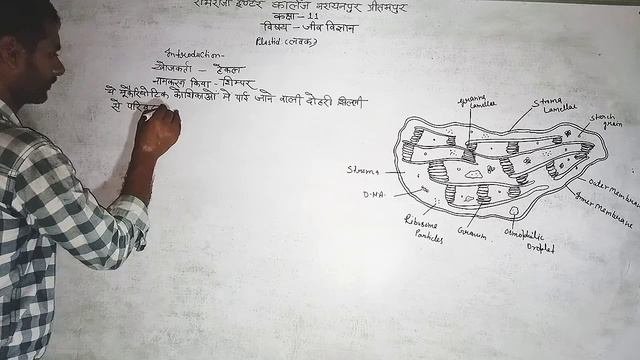 रामराजी इण्टर कालेज नरायनपुर प्रीतमपुर
कक्षा - 11
विषय - जीव विज्ञान
Plastid (लवक)
Introduction-
खोजकर्ता - हैकल
नामकरण किया - शिम्पर
ये यूकैरियोटिक कोशिकाओं में पाई जाने वाली दोहरी झिल्ली
से
granna lamellae
Stroma Lamellae
Starch grain
Stroma
D.N.A.
Ribosome Particles
Granum
Osmophilic Droplet
Outer Membrane
Inner Membrane